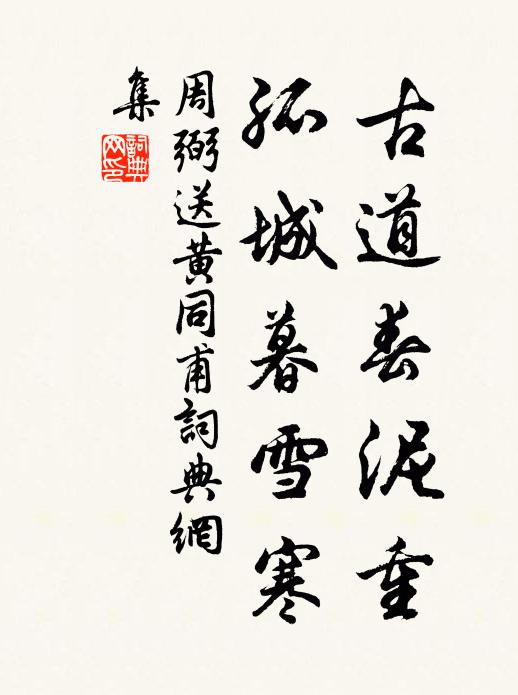 古道春泥重
孤城暮雪寒
周弼送黄同甫詞典網
集
詞典網印